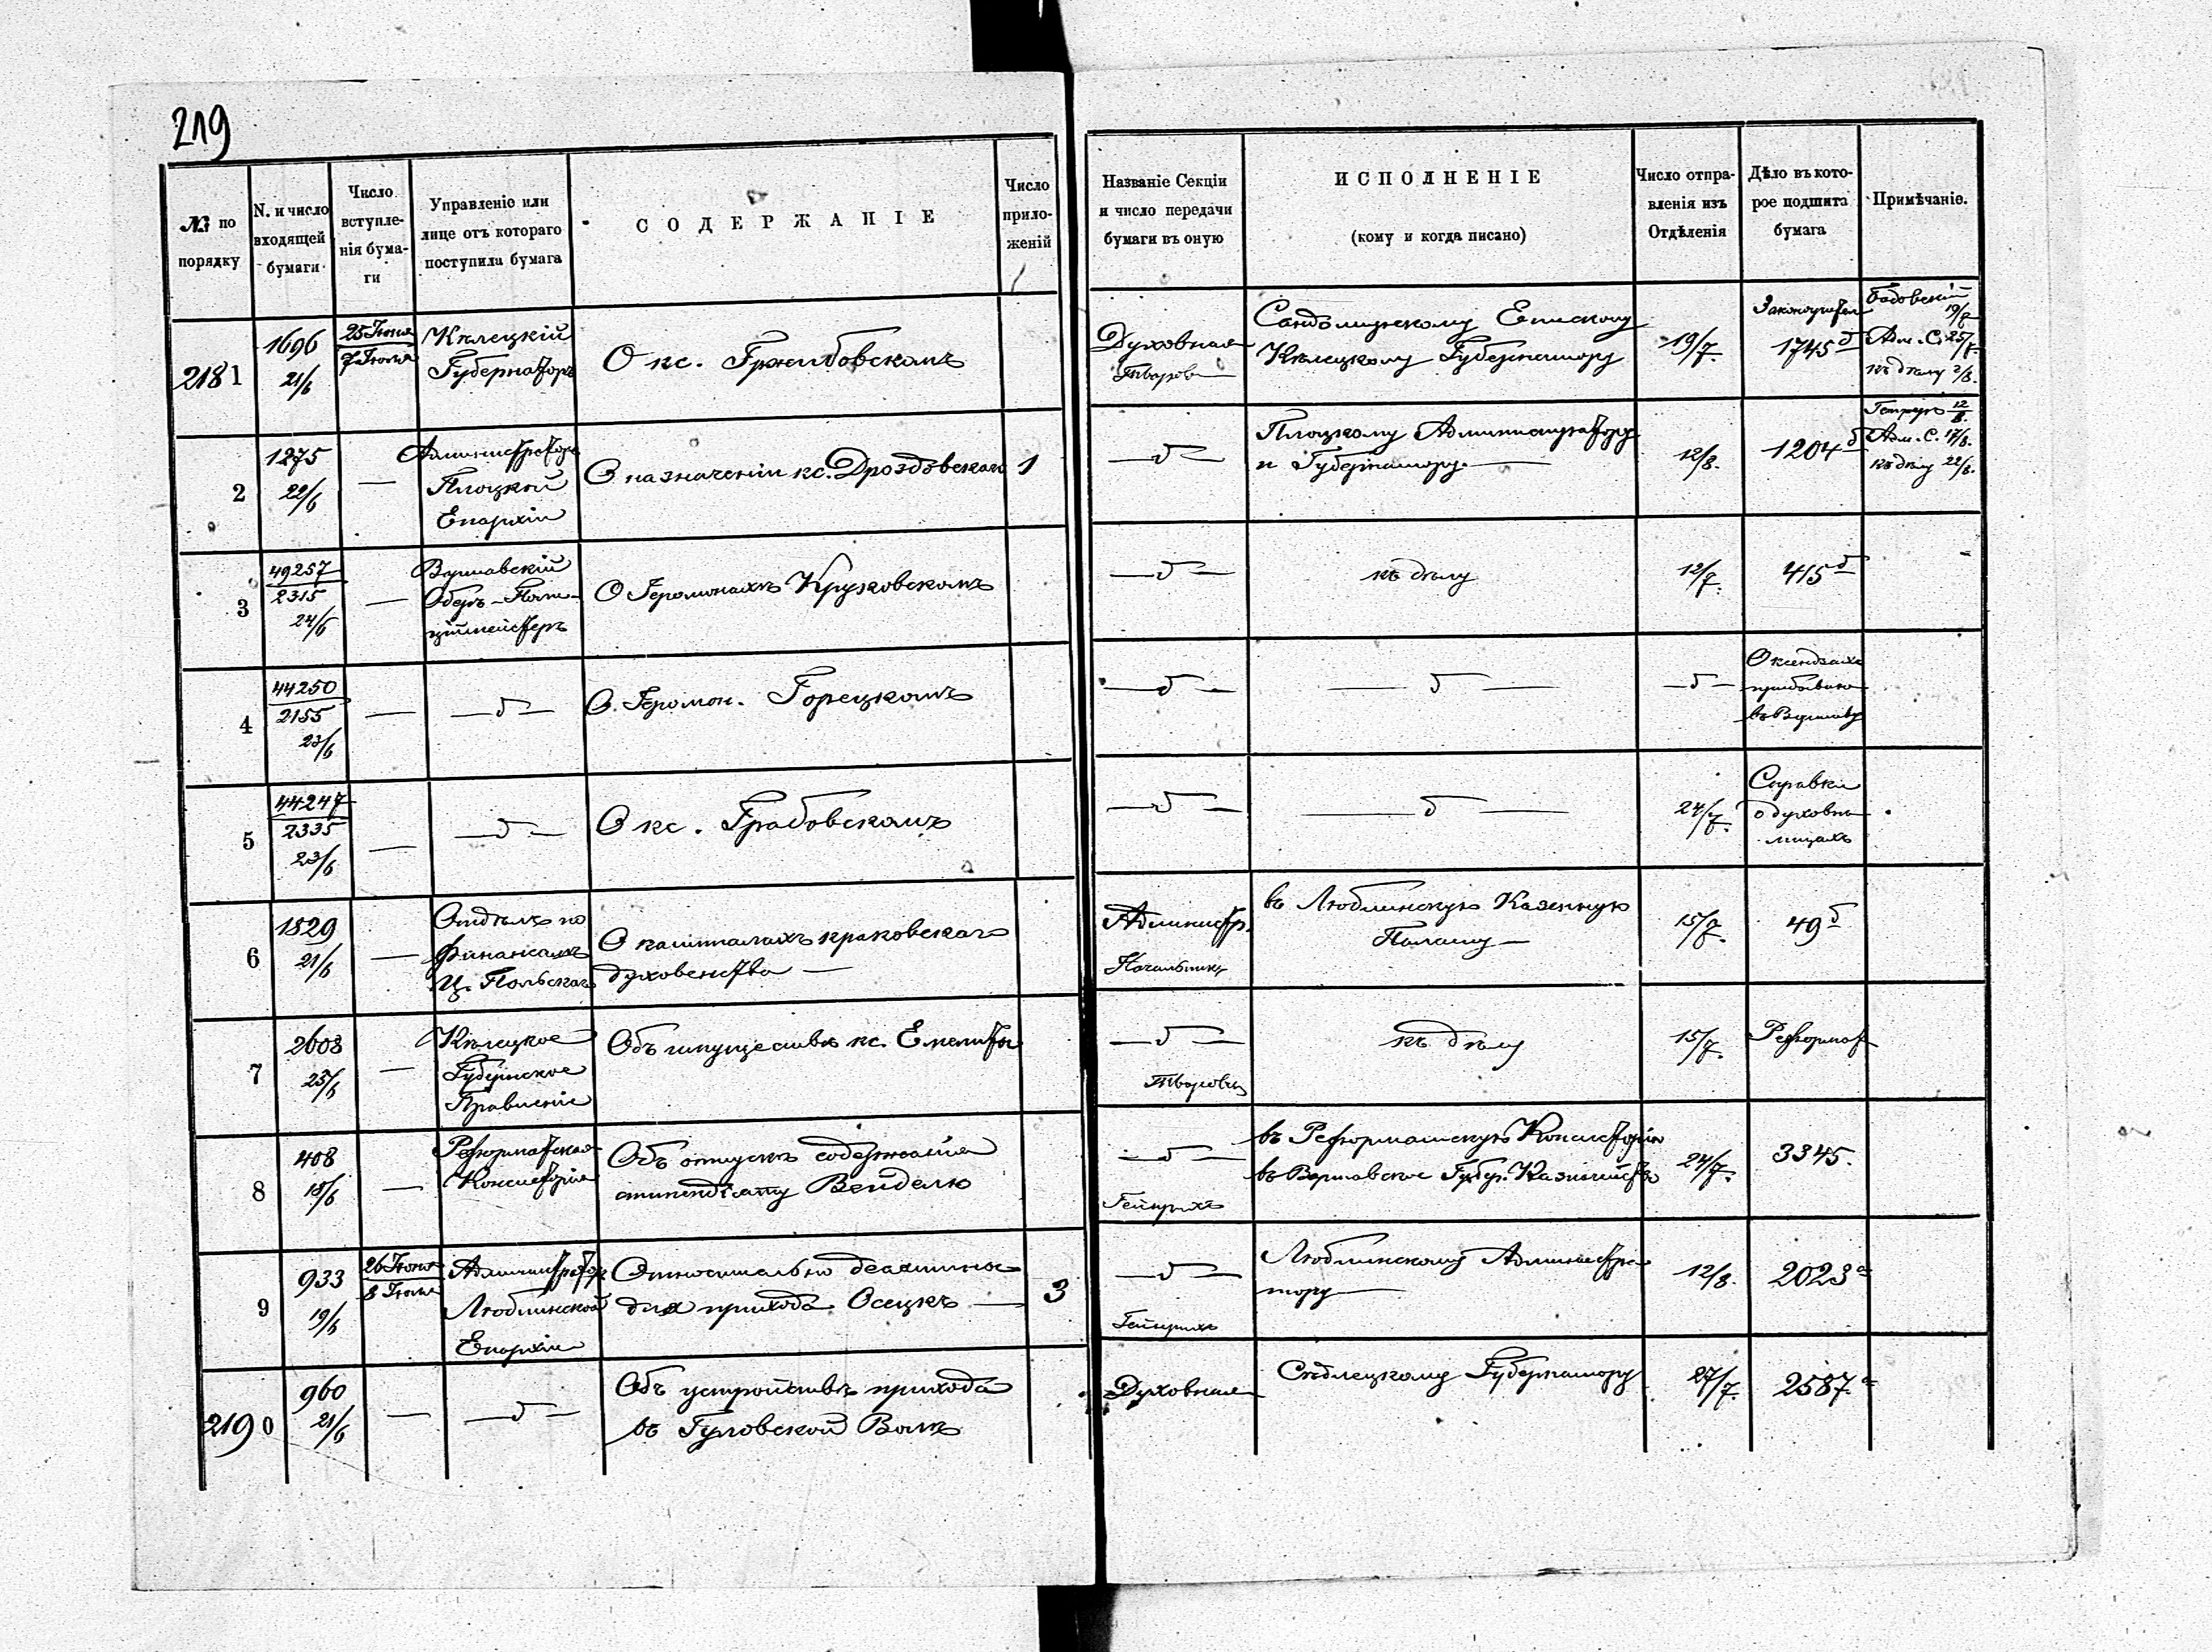 219
№ по порядку
N. и число входящей бумаги
Число вступленія бумаги
Управленіе или лице отъ котораго поступила бумага
СОДЕРЖАНІЕ
Число приложеній
Названіе Секціи и число передачи бумаги въ оную
ИСПОЛНЕНІЕ
(кому и когда писано)
Число отправленія изъ Отдѣленія
Дѣло въ которое подшита бумага
Примѣчаніе.
2181
1696
21/6
25 Іюня
7 Іюля
Кѣлецкій
Губернаторъ
О кс. Гржибовскомъ
Духовная
Сандомирскому Епископу
Кѣлецкому Губернатору
19/7.
1745 б
19/7
Адм. С. 25/7.
къ дѣлу 2/8.
2
1275
22/6
—
Администраторъ
Плоцкой
Епархіи
О назначеніи кс. Дроздовскаго
1
—д—
Плоцкому Администратору
и Губернатору —
12/8.
1204 б
12/8
Адм. С. 17/8.
къ дѣлу 22/8.
3
49257
2315
24/6
—
Варшавскій
Оберъ-Поли-
ціймейстеръ
О Іеромонахѣ Круковскомъ
—д—
къ дѣлу
12/7.
415 б
4
44250
2155
23/6
—
—д—
О Іеромон. Горецкомъ
—д—
—д—
—д—
О ксендзахъ
въ Варшаву
5
44247
2335
23/6
—
—д—
О кс. Грабовскомъ
—д—
—д—
24/7.
Справки
о духовн.
лицахъ
6
1529
21/6
—
Отдѣлъ по
финансамъ
Ц. Польскаго
О капиталахъ краковскаго
духовенства —
Администр.
въ Люблинскую Казенную
Палату —
15/7.
49 б
7
2608
23/6
—
Кѣлецкое
Губернское
Правленіе
Объ имуществѣ кс.
—д—
къ дѣлу
15/7.
Реформат
8
408
18/6
—
Реформатская
Консисторія
Объ отпускѣ содержанія
стипендіату Вейделю
—д—
Гейнрихъ
въ Реформатскую Консисторію
въ Варшавское Губер. Казначейство
24/7.
3345.
9
933
19/6
26 Іюня
8 Іюля
Администратор
Люблинской
Епархіи
Относительно десятины
для прихода Осецкъ —
3
—д—
Гейнрихъ
Люблинскому Администра
тору —
12/8.
2023 а
2190
960
21/6
—
—д—
Объ устройствѣ прихода
въ Гуловской Волѣ
Духовная
Сѣдлецкому Губернатору
27/7.
2587 а